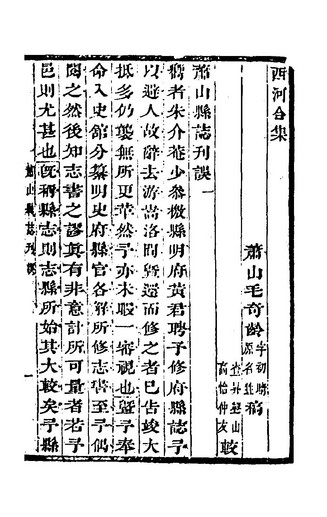 西河合集
蕭山毛奇齡字初晴原名甡稿
高怡仲友較
蕭山縣誌刊誤一
舊者朱介菴少參檄縣明府黃君聘予修府縣誌予
以避人故辭去游嵩洛間曁還而修之者已告竣大
抵多仍襲無所更革然予亦未暇一審視也曁予奉
命入史館分纂明史府縣官各解所修志書至予偶
閱之然後知志書之謬眞有非意計所可量者若予
邑則尤甚也旣稱縣志則志縣所始其大較矣予縣
蕭山縣誌刊誤 一